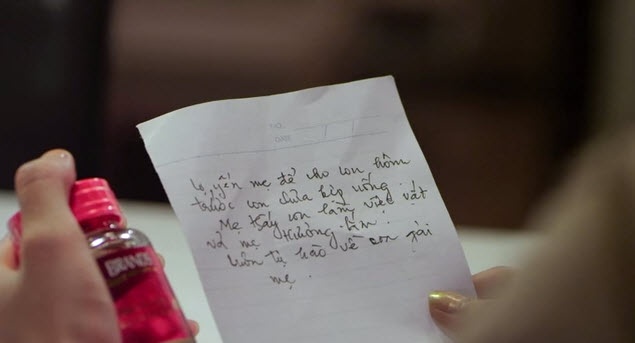 NO.
DATE / /
Lọ yến mẹ để cho con hôm
trước con chưa kịp uống
Mẹ thấy con làm việc vất
vả mẹ thương lắm!
Luôn tự hào về con gái
mẹ.
BRAND'S